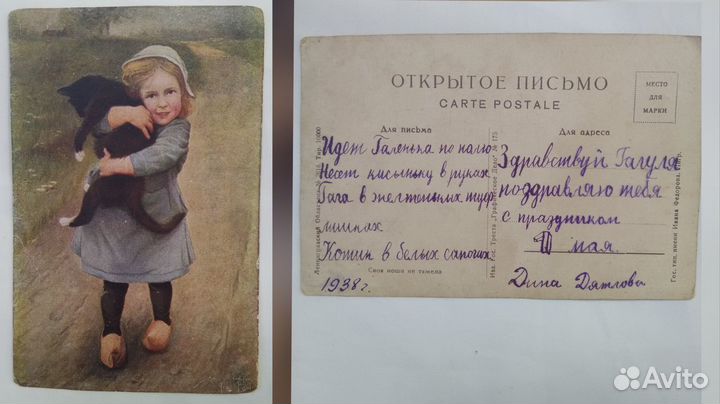 ОТКРЫТОЕ ПИСЬМО
CARTE POSTALE
МЕСТО
ДЛЯ
МАРКИ
Для письма
Идет Галенька по палю
Несет кисыньку в руках
Гага в желтеньких туф
лишках
Котик в белых сапогах
Своя ноша не тяжела
1938 г.
Ленинградский Областлит № 3014. Тир. 10000
Изд. Гос. Треста „Графическое Дело" № 175
Для адреса
Здравствуй Гагуля
поздравляю тебя
с праздником
мая
Дина Дятлова
Гос. тип. имени Ивана Федорова, Лнгр.
Avito